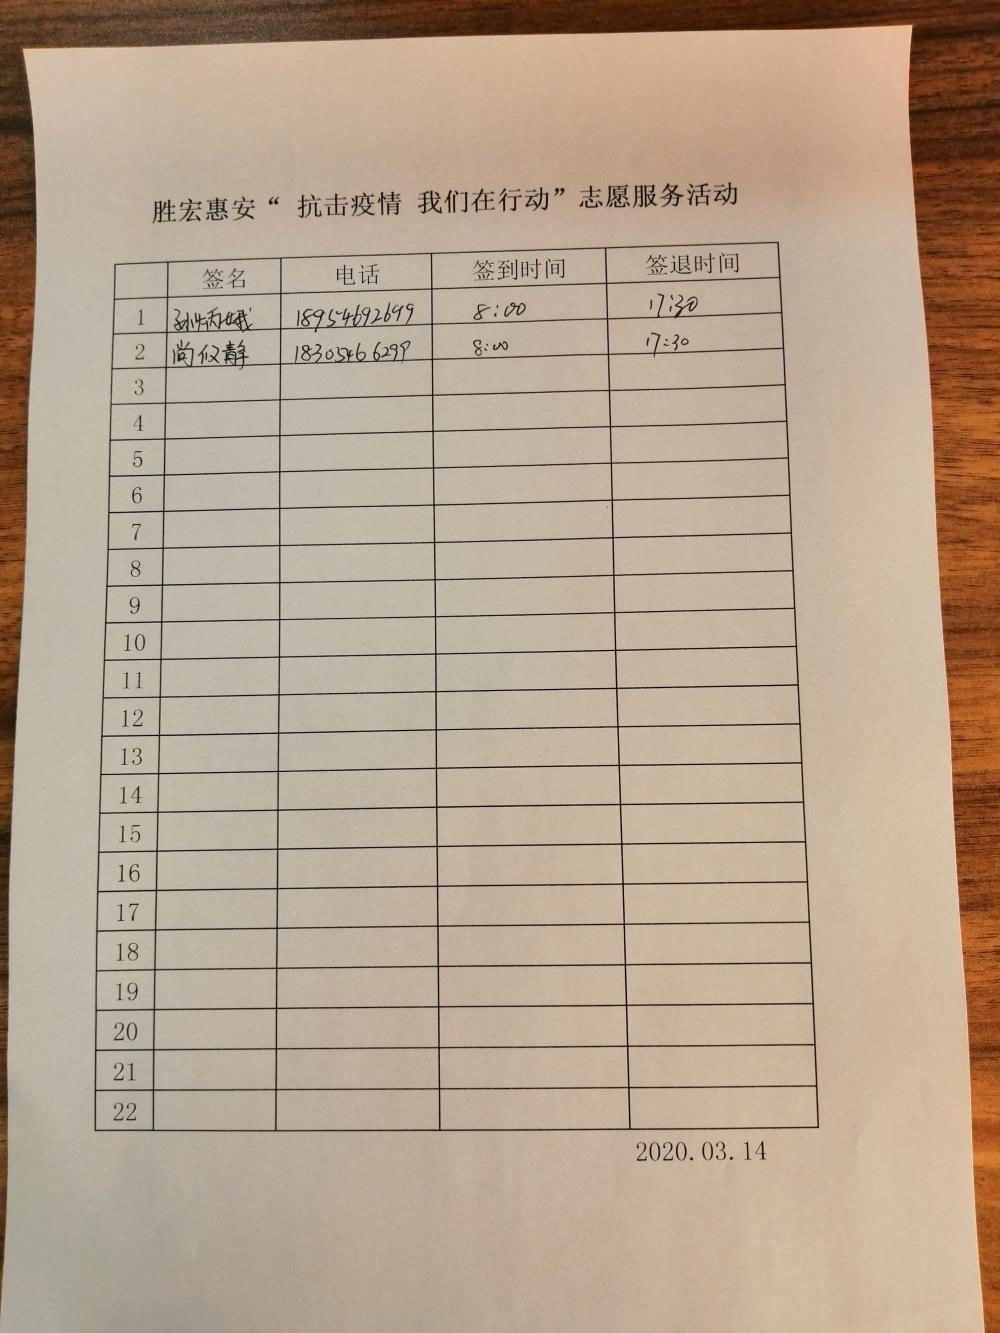 胜宏惠安“ 抗击疫情 我们在行动”志愿服务活动
签名 电话 签到时间 签退时间
1 孙炳娥 18954692699 8:00 17:30
2 尚仪静 18305466299 8:00 17:30
3
4
5
6
7
8
9
10
11
12
13
14
15
16
17
18
19
20
21
22
2020.03.14